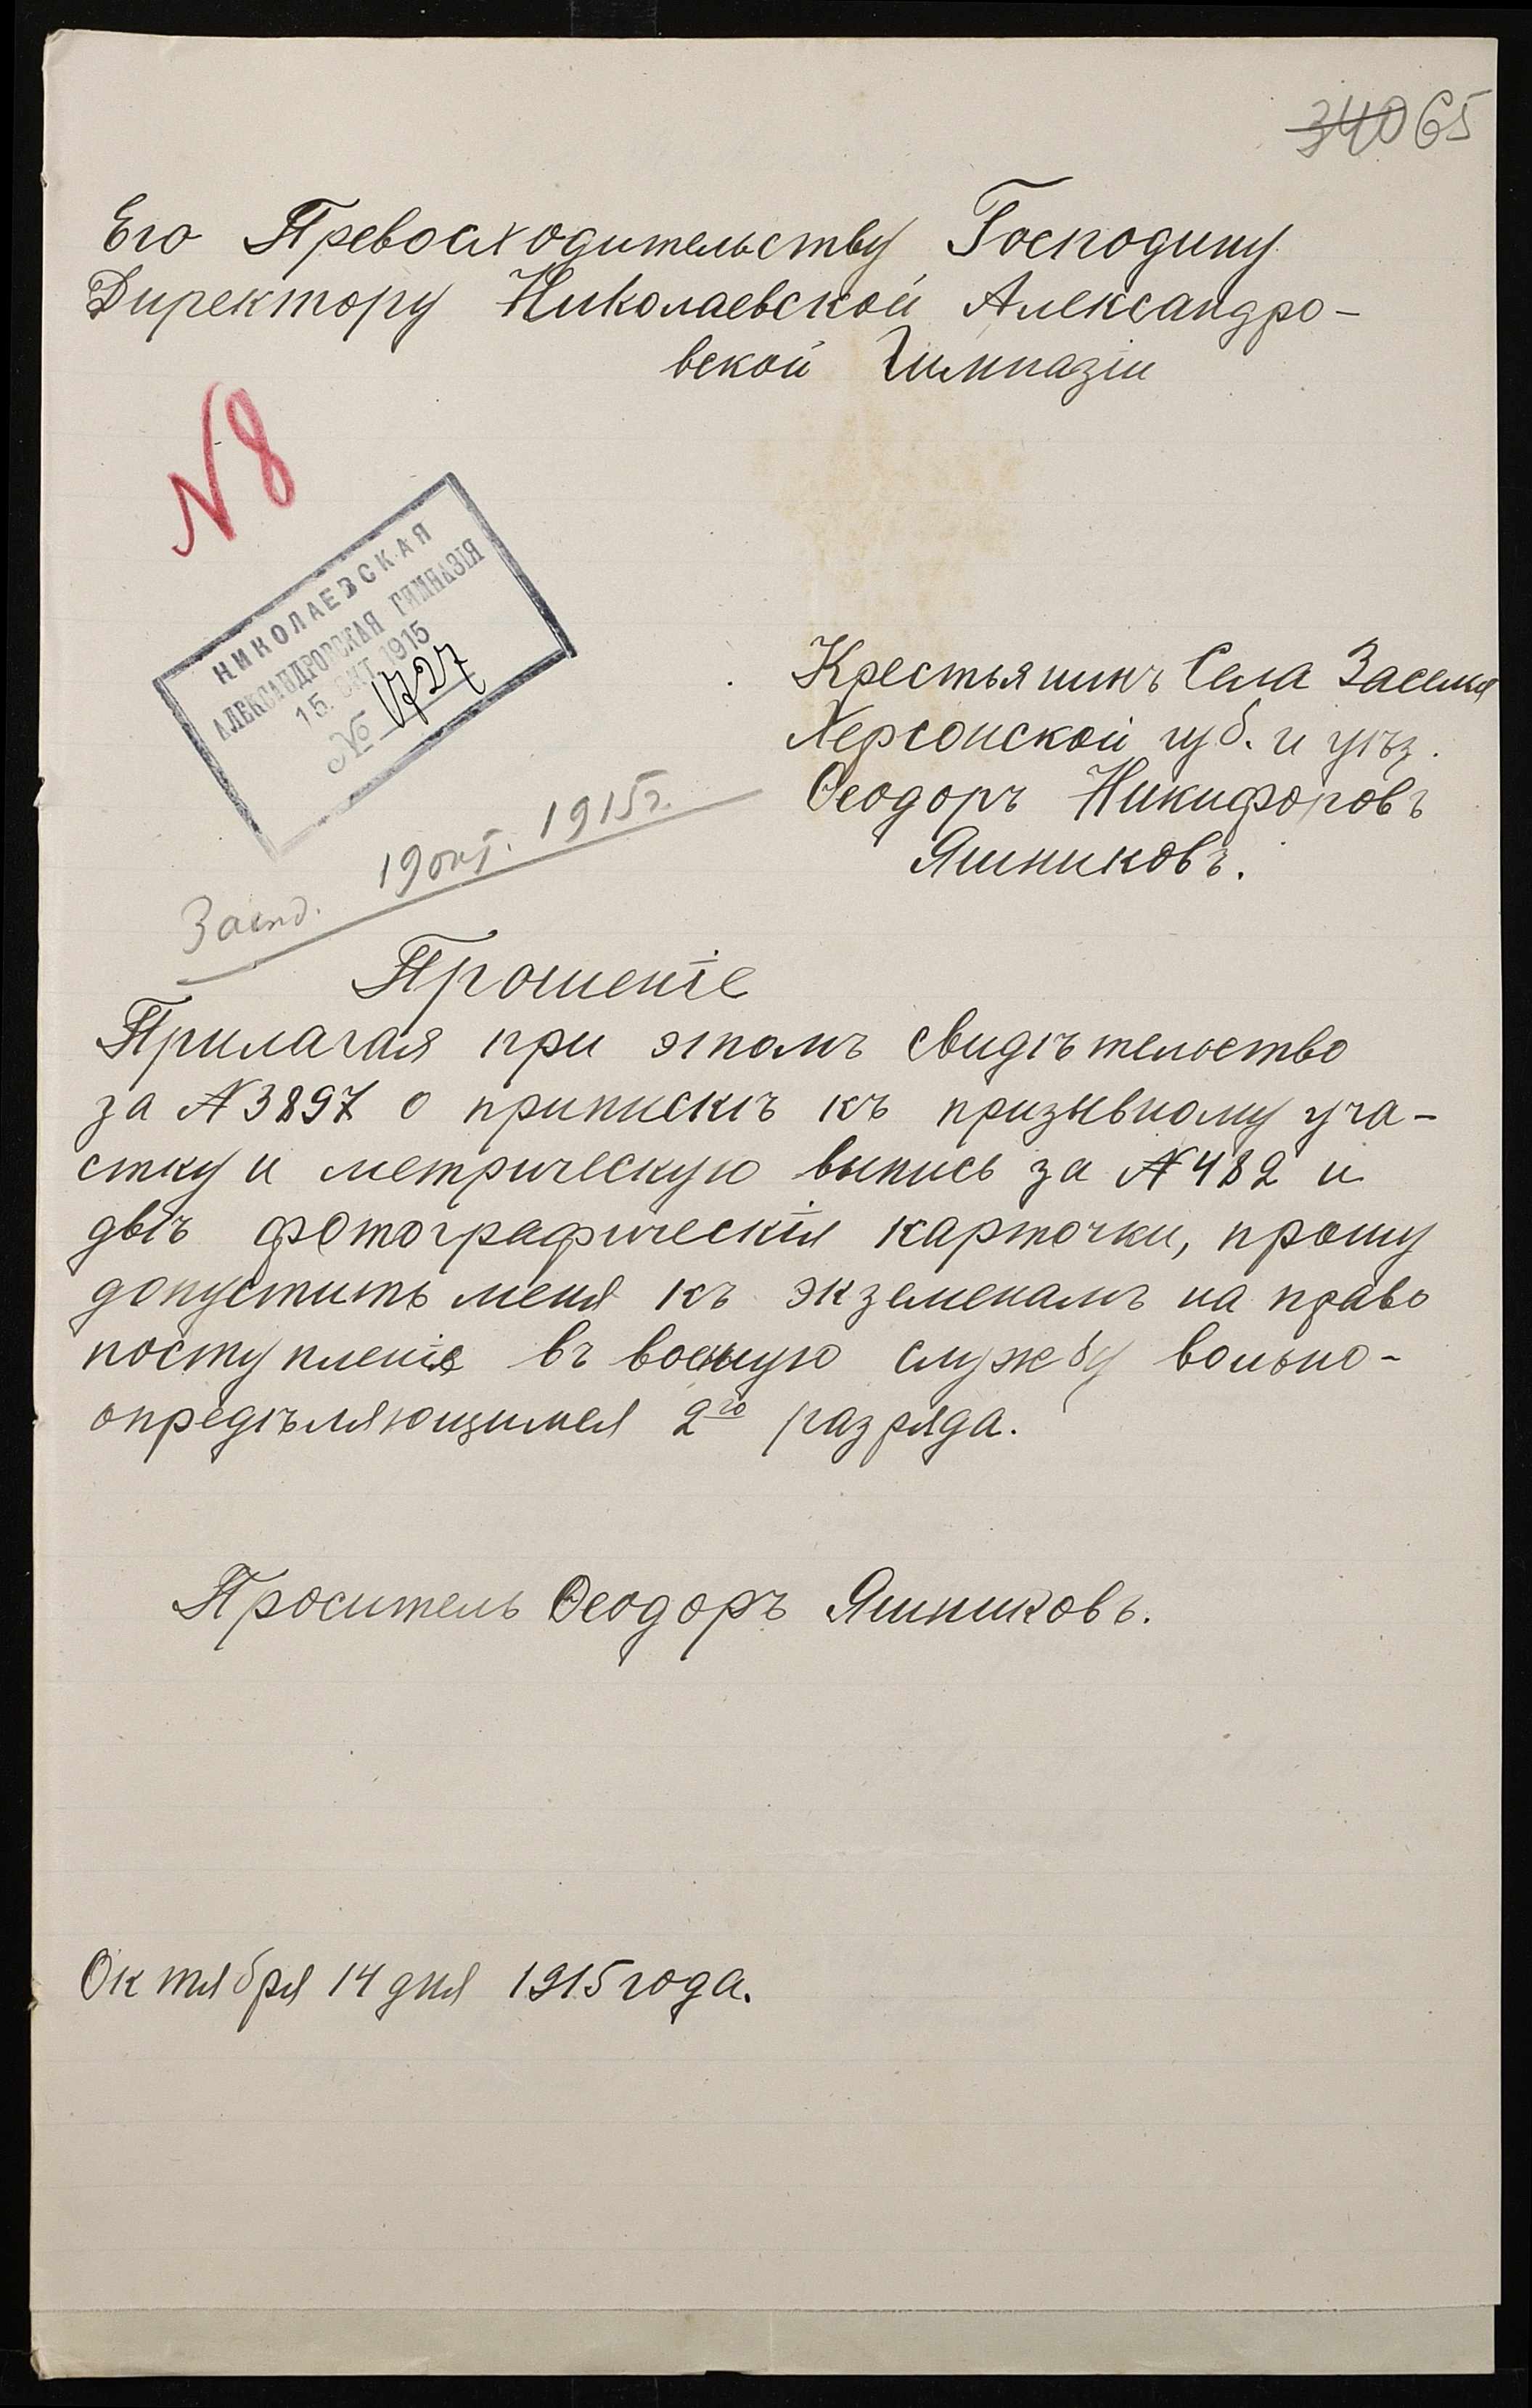 340 65
Его Превосходительству Господину
Директору Николаевской Александро-
вской Гимназіи
N 8
НИКОЛАЕВСКАЯ
АЛЕКСАНДРОВСКАЯ ГИМНАЗІЯ
15. ОКТ. 1915
№ 1727
Крестьянинъ Села Заселья
Херсонской губ. и уѣз.
Ѳеодоръ Никифоровъ
Яшниковъ.
19 окт. 1915 г.
Прошеніе
Прилагая при этомъ свидѣтельство
за N 3897 о припискѣ къ призывному уча-
стку и метрическую выпись за N 482 и
двѣ фотографическія карточки, прошу
допустить меня къ экземенамъ на право
поступленія въ военую службу вольно-
опредѣляющимся 2го разряда.
Проситель Ѳеодоръ Яшниковъ.
Октября 14 дня 1915 года.